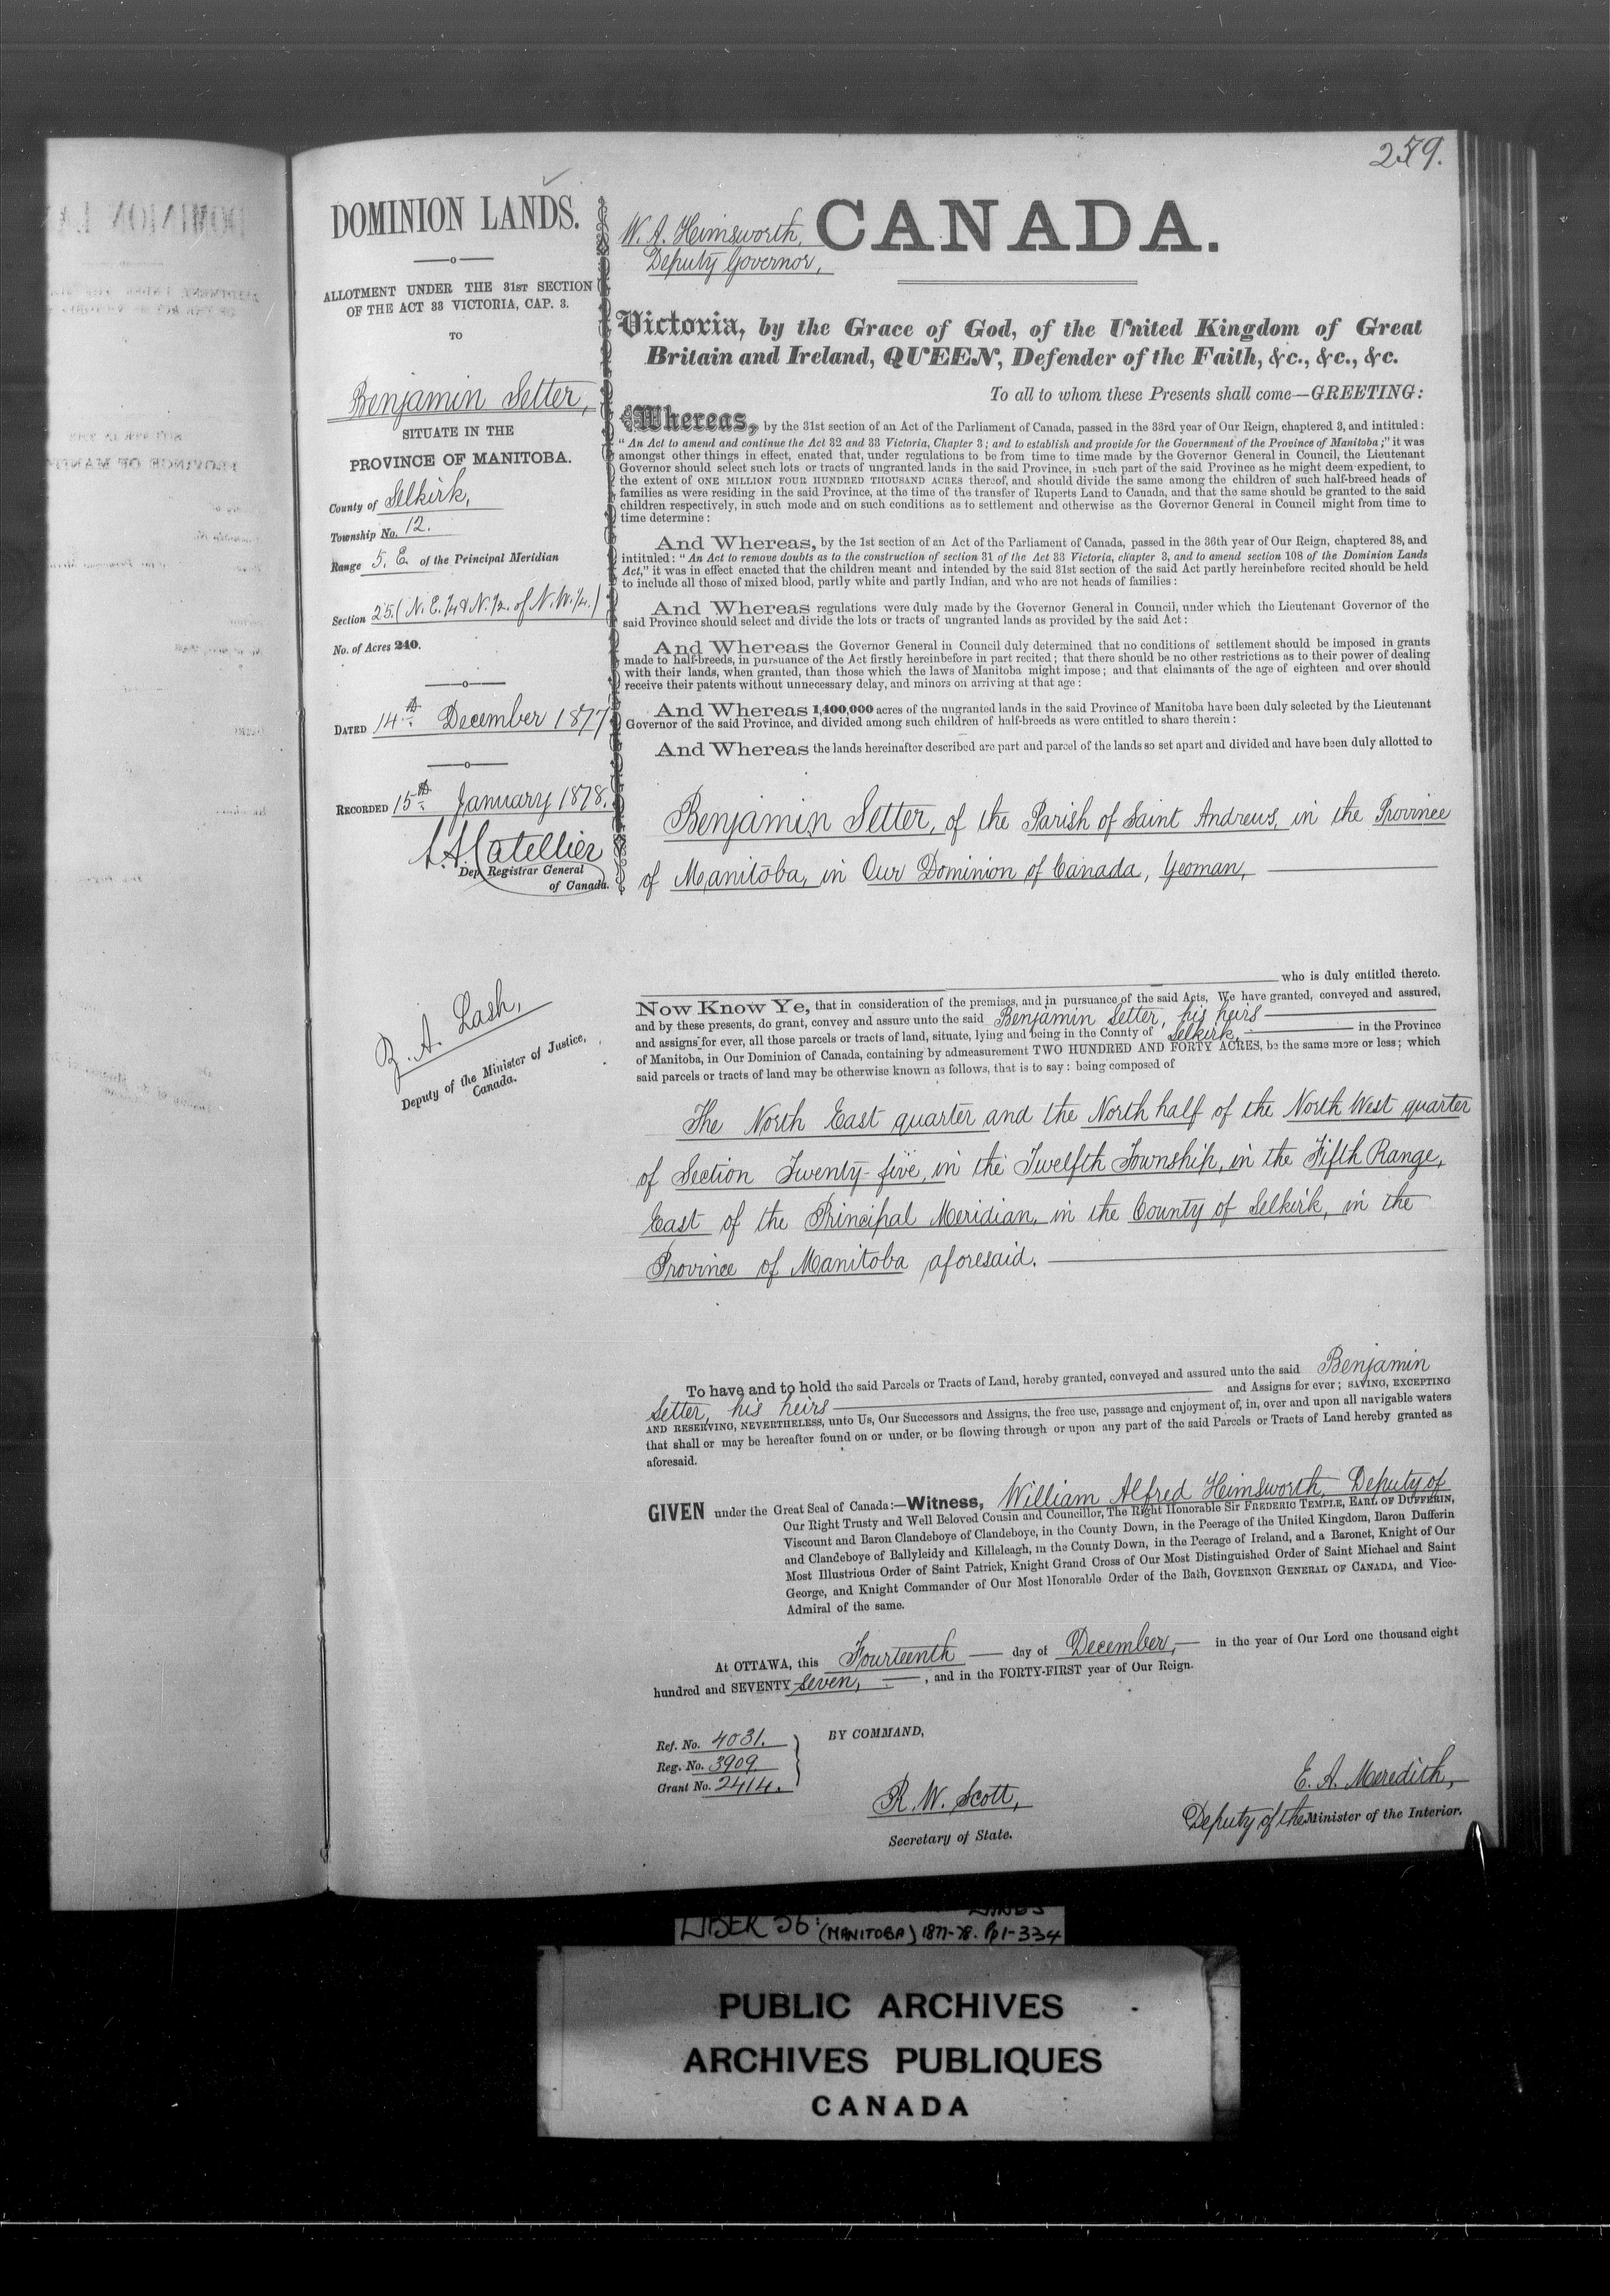 279.
DOMINION LANDS.
ALLOTMENT UNDER THE 31ST SECTION
OF THE ACT 33 VICTORIA, CAP. 3.
TO
Benjamin Setter,
SITUATE IN THE
PROVINCE OF MANITOBA.
County of Selkirk,
Township No. 12.
Range 5. E. of the Principal Meridian
Section 25. (N. E. 1/4 & N. 1/2. of N. W. 1/4.)
No. of Acres 240.
DATED 14th December 1877
RECORDED 15th January 1878.
L. A. Catellier
Dep Registrar General
of Canada.
Z. A. Lash,
Deputy of the Minister of Justice,
Canada.
W. A. Himsworth,
Deputy Governor,
CANADA.
Victoria, by the Grace of God, of the United Kingdom of Great
Britain and Ireland, QUEEN, Defender of the Faith, &c., &c., &c.
To all to whom these Presents shall come—GREETING:
Whereas, by the 31st section of an Act of the Parliament of Canada, passed in the 33rd year of Our Reign, chaptered 3, and intituled:
"An Act to amend and continue the Act 32 and 33 Victoria, Chapter 3; and to establish and provide for the Government of the Province of Manitoba;" it was
amongst other things in effect, enated that, under regulations to be from time to time made by the Governor General in Council, the Lieutenant
Governor should select such lots or tracts of ungranted lands in the said Province, in such part of the said Province as he might deem expedient, to
the extent of ONE MILLION FOUR HUNDRED THOUSAND ACRES thereof, and should divide the same among the children of such half-breed heads of
families as were residing in the said Province, at the time of the transfer of Ruperts Land to Canada, and that the same should be granted to the said
children respectively, in such mode and on such conditions as to settlement and otherwise as the Governor General in Council might from time to
time determine:
And Whereas, by the 1st section of an Act of the Parliament of Canada, passed in the 36th year of Our Reign, chaptered 38, and
intituled: "An Act to remove doubts as to the construction of section 31 of the Act 33 Victoria, chapter 3, and to amend section 108 of the Dominion Lands
Act," it was in effect enacted that the children meant and intended by the said 31st section of the said Act partly hereinbefore recited should be held
to include all those of mixed blood, partly white and partly Indian, and who are not heads of families:
And Whereas regulations were duly made by the Governor General in Council, under which the Lieutenant Governor of the
said Province should select and divide the lots or tracts of ungranted lands as provided by the said Act:
And Whereas the Governor General in Council duly determined that no conditions of settlement should be imposed in grants
made to half-breeds, in pursuance of the Act firstly hereinbefore in part recited; that there should be no other restrictions as to their power of dealing
with their lands, when granted, than those which the laws of Manitoba might impose; and that claimants of the age of eighteen and over should
receive their patents without unnecessary delay, and minors on arriving at that age:
And Whereas 1,400,000 acres of the ungranted lands in the said Province of Manitoba have been duly selected by the Lieutenant
Governor of the said Province, and divided among such children of half-breeds as were entitled to share therein:
And Whereas the lands hereinafter described are part and parcel of the lands so set apart and divided and have been duly allotted to
Benjamin Setter, of the Parish of Saint Andrews, in the Province
of Manitoba, in Our Dominion of Canada, Yeoman,
who is duly entitled thereto.
Now Know Ye, that in consideration of the premises, and in pursuance of the said Acts, We have granted, conveyed and assured,
and by these presents, do grant, convey and assure unto the said Benjamin Setter, his heirs
and assigns for ever, all those parcels or tracts of land, situate, lying and being in the County of Selkirk, in the Province
of Manitoba, in Our Dominion of Canada, containing by admeasurement TWO HUNDRED AND FORTY ACRES, be the same more or less; which
said parcels or tracts of land may be otherwise known as follows, that is to say: being composed of
The North East quarter and the North half of the North West quarter
of Section Twenty-five, in the Twelfth Township, in the Fifth Range,
East of the Principal Meridian, in the County of Selkirk, in the
Province of Manitoba aforesaid.
To have and to hold the said Parcels or Tracts of Land, hereby granted, conveyed and assured unto the said Benjamin
Setter, his heirs and Assigns for ever; SAVING, EXCEPTING
AND RESERVING, NEVERTHELESS, unto Us, Our Successors and Assigns, the free use, passage and enjoyment of, in, over and upon all navigable waters
that shall or may be hereafter found on or under, or be flowing through or upon any part of the said Parcels or Tracts of Land hereby granted as
aforesaid.
GIVEN under the Great Seal of Canada:—Witness, William Alfred Himsworth, Deputy of
Our Right Trusty and Well Beloved Cousin and Councillor, The Right Honorable Sir FREDERIC TEMPLE, EARL OF DUFFERIN,
Viscount and Baron Clandeboye of Clandeboye, in the County Down, in the Peerage of the United Kingdom, Baron Dufferin
and Clandeboye of Ballyleidy and Killeleagh, in the County Down, in the Peerage of Ireland, and a Baronet, Knight of Our
Most Illustrious Order of Saint Patrick, Knight Grand Cross of Our Most Distinguished Order of Saint Michael and Saint
George, and Knight Commander of Our Most Honorable Order of the Bath, GOVERNOR GENERAL OF CANADA, and Vice-
Admiral of the same.
At OTTAWA, this Fourteenth day of December, in the year of Our Lord one thousand eight
hundred and SEVENTY Seven, , and in the FORTY-FIRST year of Our Reign.
Ref. No. 4031.
Reg. No. 3909
Grant No. 2414.
BY COMMAND,
R. W. Scott,
Secretary of State.
E. A. Meredith,
Deputy of the Minister of the Interior.
LIBER 56: LANDS
(MANITOBA) 1877-78. Pp 1-334
PUBLIC ARCHIVES
ARCHIVES PUBLIQUES
CANADA